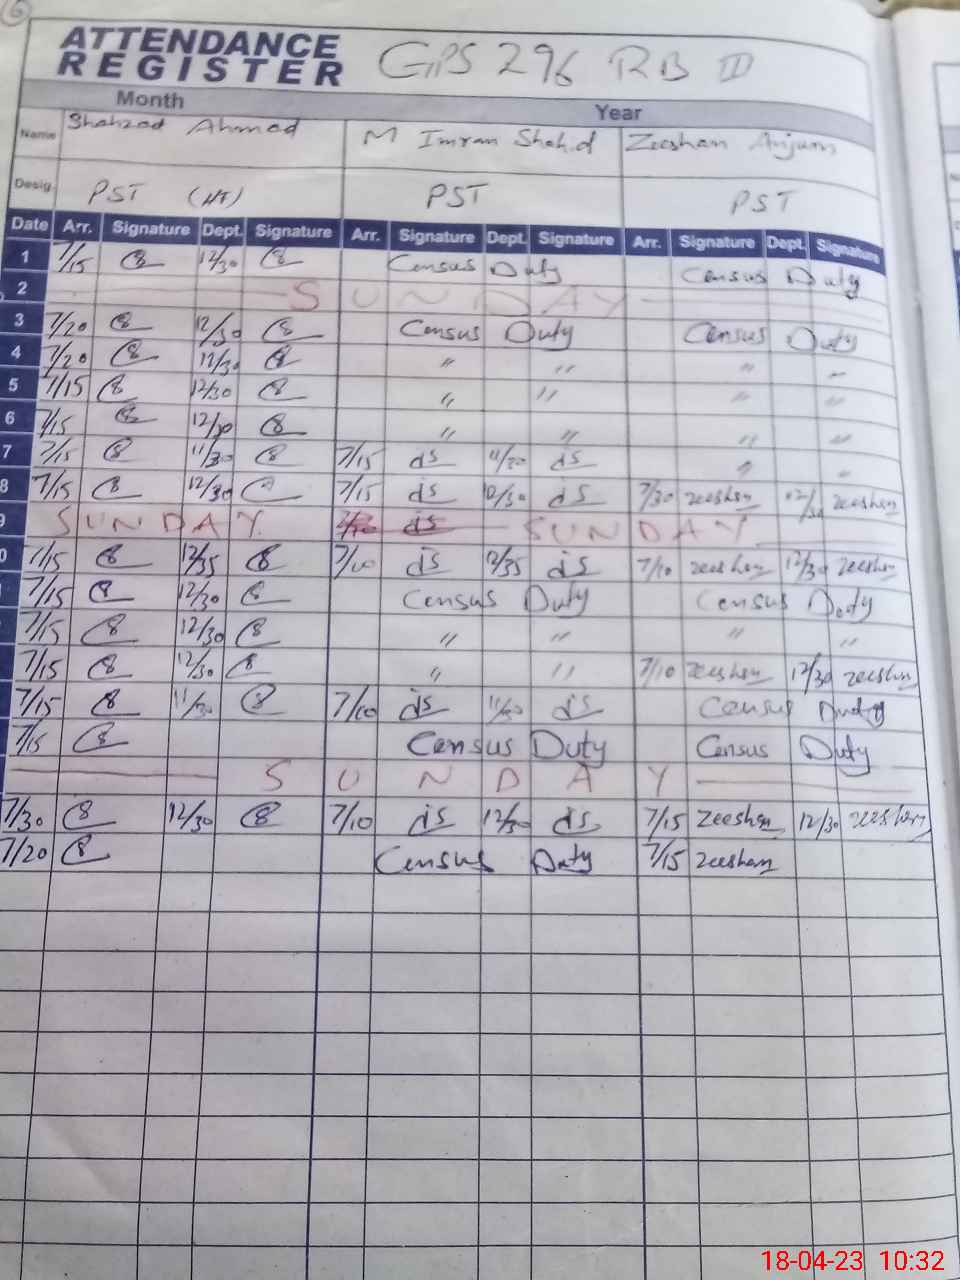 6
ATTENDANCE
REGISTER GPS 296 RB III
Month Year
Name Shahzad Ahmad M Imran Shahid Zeeshan Anjum
Desig. PST (HT) PST PST
Date Arr. Signature Dept. Signature Arr. Signature Dept. Signature Arr. Signature Dept. Signature
1 7/15 12/30 Census Duty Census Duty
2 SUNDAY
3 7/20 12/30 Census Duty Census Duty
4 7/20 12/30 " " " "
5 7/15 12/30 " " " "
6 7/15 12/30 " " " "
7 7/15 11/30 7/15 ds 11/30 ds " "
8 7/15 12/30 7/15 ds 12/30 ds 7/30 zeeshan 12/30 zeeshan
9 SUNDAY ds SUNDAY
0 7/15 12/35 7/10 ds 12/35 ds 7/10 zeeshan 12/30 zeeshan
7/15 12/30 Census Duty Census Duty
7/15 12/30 " " " "
7/15 12/30 " " 7/10 zeeshan 12/30 zeeshan
7/15 11/30 7/10 ds 11/30 ds Census Duty
7/15 Census Duty Census Duty
SUNDAY
7/30 12/30 7/10 ds 12/30 ds 7/15 Zeeshan 12/30 zeeshan
7/20 Census Duty 7/15 zeeshan
18-04-23 10:32